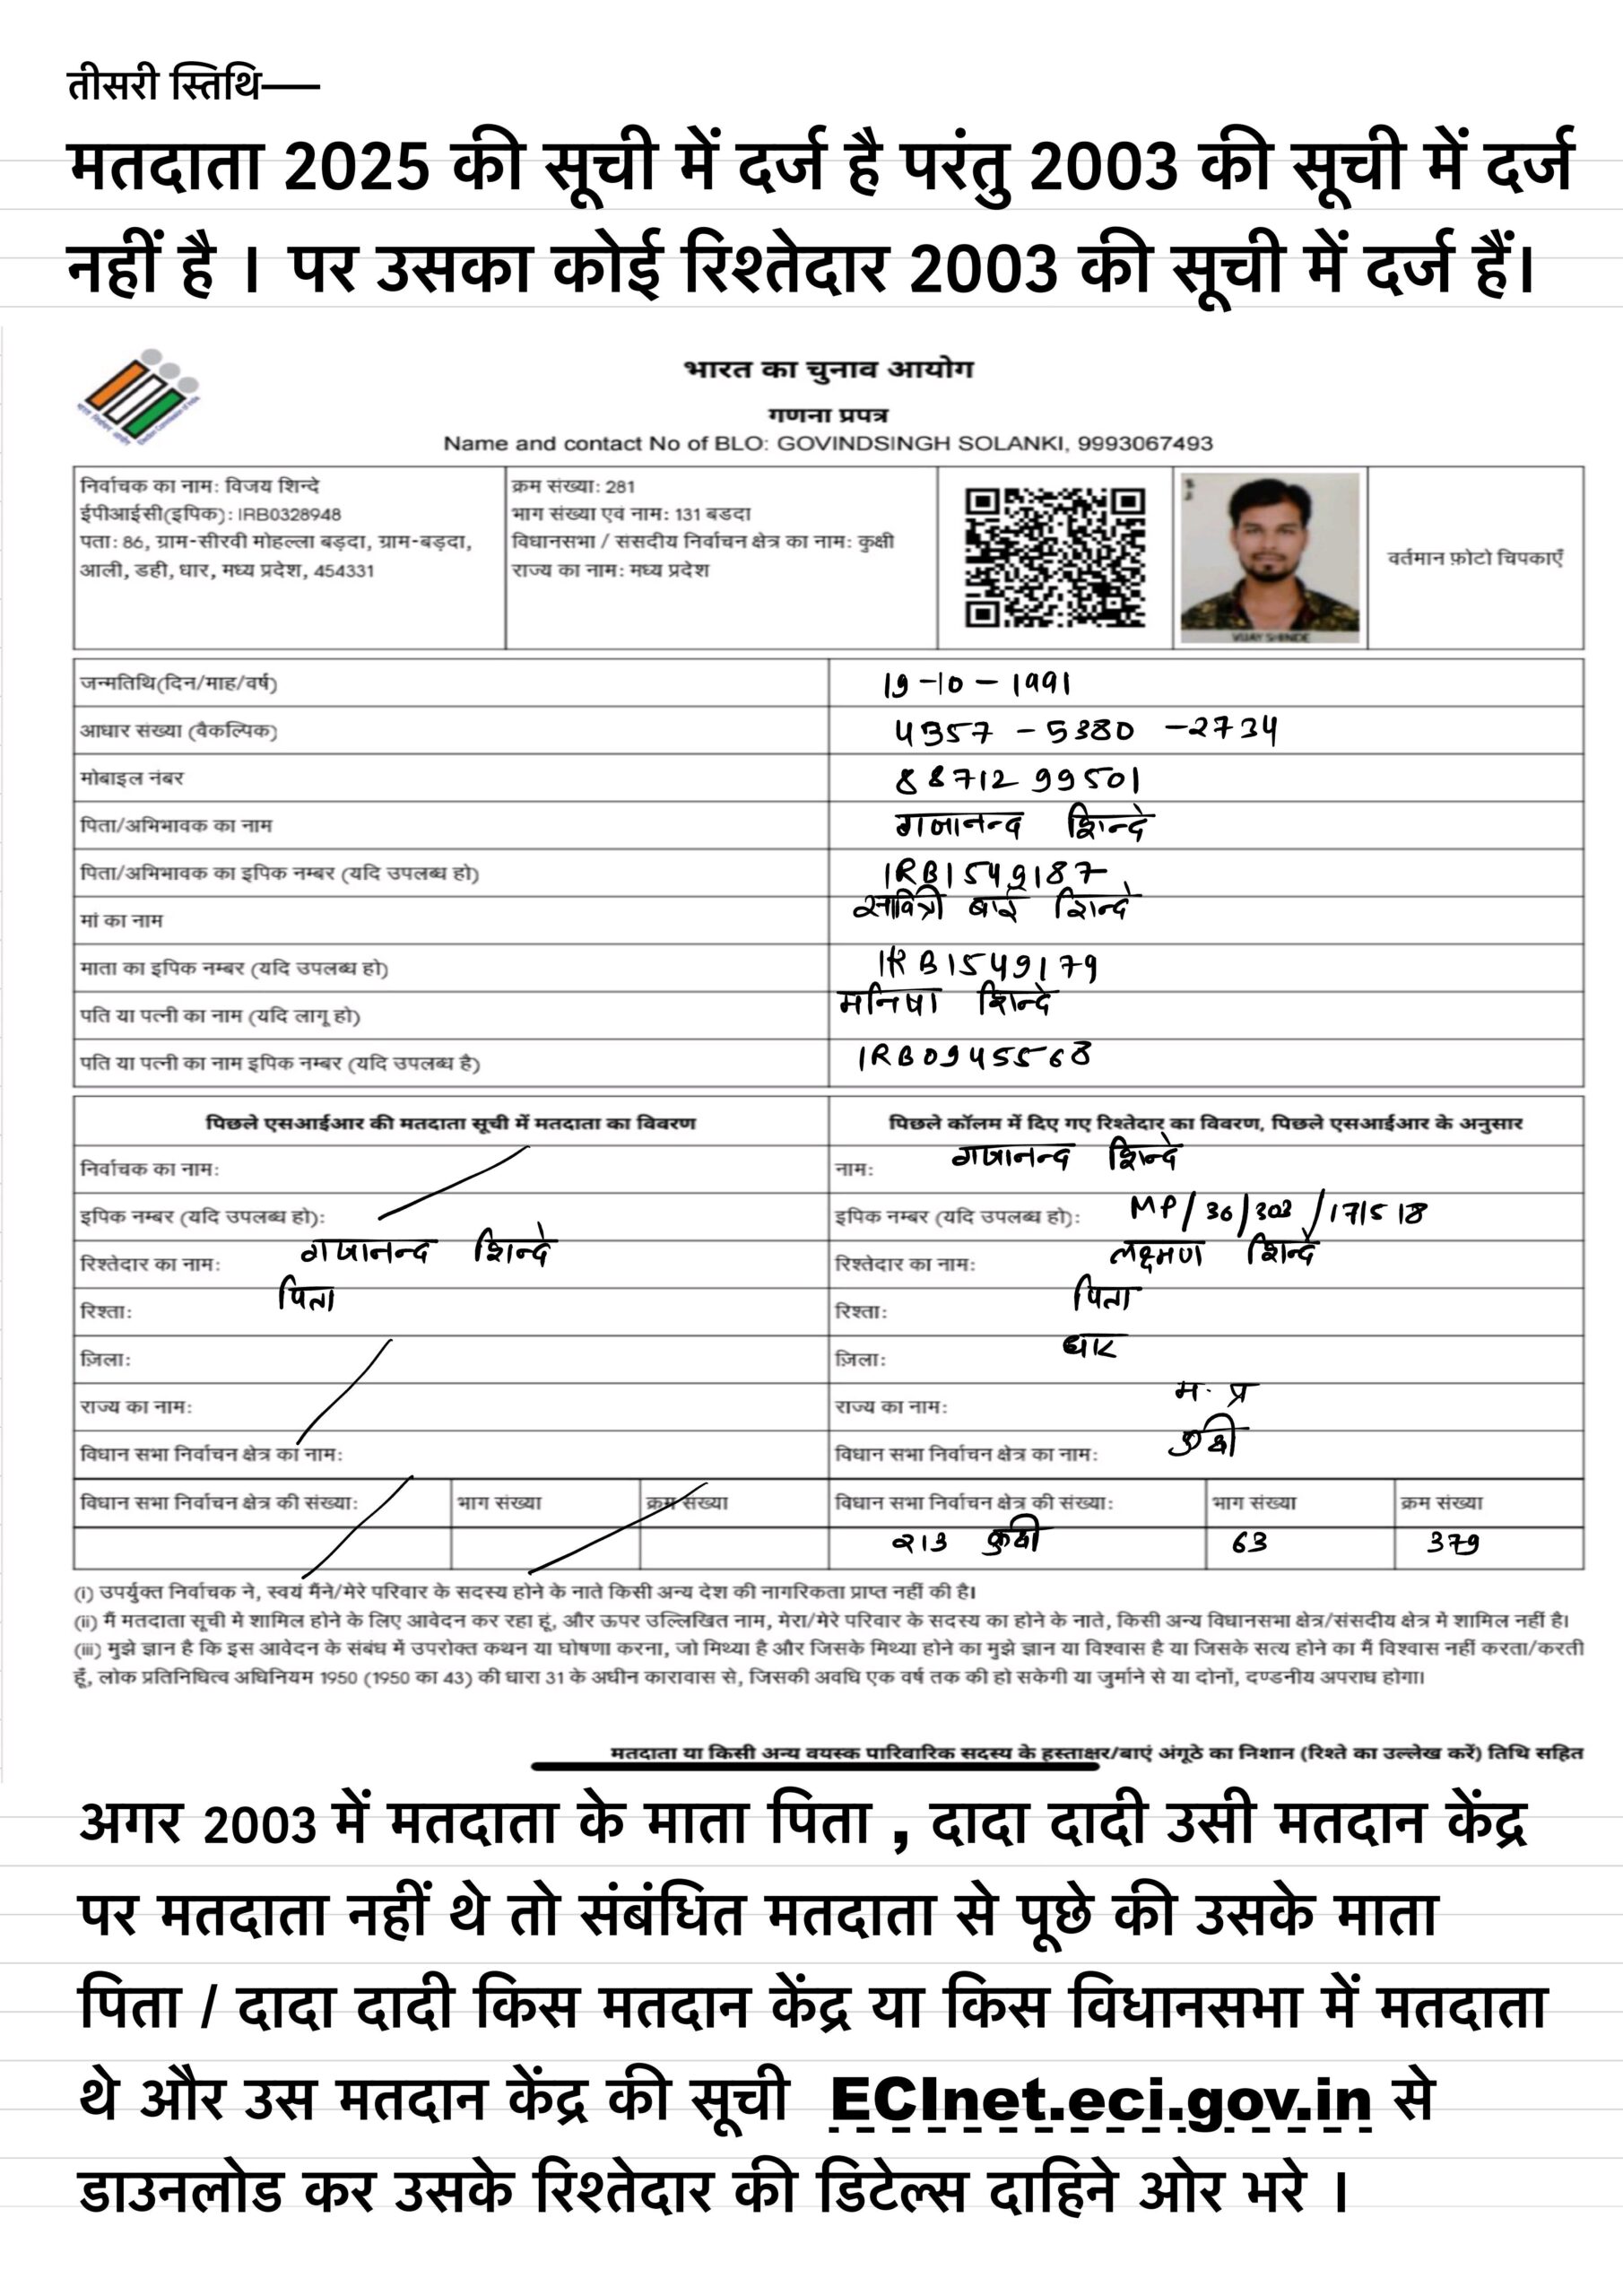 तीसरी स्तिथि—
मतदाता 2025 की सूची में दर्ज है परंतु 2003 की सूची में दर्ज
नहीं है । पर उसका कोई रिश्तेदार 2003 की सूची में दर्ज हैं।
भारत का चुनाव आयोग
गणना प्रपत्र
Name and contact No of BLO: GOVINDSINGH SOLANKI, 9993067493
निर्वाचक का नाम: विजय शिन्दे
ईपीआईसी(इपिक): IRB0328948
पता: 86, ग्राम-सीरवी मोहल्ला बड़दा, ग्राम-बड़दा,
आली, डही, धार, मध्य प्रदेश, 454331
क्रम संख्या: 281
भाग संख्या एवं नाम: 131 बडदा
विधानसभा / संसदीय निर्वाचन क्षेत्र का नाम: कुक्षी
राज्य का नाम: मध्य प्रदेश
VIJAY SHINDE
वर्तमान फ़ोटो चिपकाएँ
जन्मतिथि(दिन/माह/वर्ष) 19-10-1991
आधार संख्या (वैकल्पिक) 4357-5380-2734
मोबाइल नंबर 8871299501
पिता/अभिभावक का नाम गजानन्द शिन्दे
पिता/अभिभावक का इपिक नम्बर (यदि उपलब्ध हो) IRB1549187
मां का नाम सावित्री बाई शिन्दे
माता का इपिक नम्बर (यदि उपलब्ध हो) IRB1549179
पति या पत्नी का नाम (यदि लागू हो) मनिषा शिन्दे
पति या पत्नी का नाम इपिक नम्बर (यदि उपलब्ध है) IRB0945568
पिछले एसआईआर की मतदाता सूची में मतदाता का विवरण
पिछले कॉलम में दिए गए रिश्तेदार का विवरण, पिछले एसआईआर के अनुसार
निर्वाचक का नाम:
नाम: गजानन्द शिन्दे
इपिक नम्बर (यदि उपलब्ध हो):
इपिक नम्बर (यदि उपलब्ध हो): MP/36/302/171518
रिश्तेदार का नाम: गजानन्द शिन्दे
रिश्तेदार का नाम: लक्ष्मण शिन्दे
रिश्ता: पिता
रिश्ता: पिता
ज़िला:
ज़िला: धार
राज्य का नाम:
राज्य का नाम: म.प्र
विधान सभा निर्वाचन क्षेत्र का नाम:
विधान सभा निर्वाचन क्षेत्र का नाम: कुक्षी
विधान सभा निर्वाचन क्षेत्र की संख्या: भाग संख्या क्रम संख्या
विधान सभा निर्वाचन क्षेत्र की संख्या: भाग संख्या क्रम संख्या
213 कुक्षी 63 379
(i) उपर्युक्त निर्वाचक ने, स्वयं मैंने/मेरे परिवार के सदस्य होने के नाते किसी अन्य देश की नागरिकता प्राप्त नहीं की है।
(ii) मैं मतदाता सूची में शामिल होने के लिए आवेदन कर रहा हूं, और ऊपर उल्लिखित नाम, मेरा/मेरे परिवार के सदस्य का होने के नाते, किसी अन्य विधानसभा क्षेत्र/संसदीय क्षेत्र में शामिल नहीं है।
(iii) मुझे ज्ञान है कि इस आवेदन के संबंध में उपरोक्त कथन या घोषणा करना, जो मिथ्या है और जिसके मिथ्या होने का मुझे ज्ञान या विश्वास है या जिसके सत्य होने का मैं विश्वास नहीं करता/करती
हूँ, लोक प्रतिनिधित्व अधिनियम 1950 (1950 का 43) की धारा 31 के अधीन कारावास से, जिसकी अवधि एक वर्ष तक की हो सकेगी या जुर्माने से या दोनों, दण्डनीय अपराध होगा।
मतदाता या किसी अन्य वयस्क पारिवारिक सदस्य के हस्ताक्षर/बाएं अंगूठे का निशान (रिश्ते का उल्लेख करें) तिथि सहित
अगर 2003 में मतदाता के माता पिता , दादा दादी उसी मतदान केंद्र
पर मतदाता नहीं थे तो संबंधित मतदाता से पूछे की उसके माता
पिता / दादा दादी किस मतदान केंद्र या किस विधानसभा में मतदाता
थे और उस मतदान केंद्र की सूची ECInet.eci.gov.in से
डाउनलोड कर उसके रिश्तेदार की डिटेल्स दाहिने ओर भरे ।